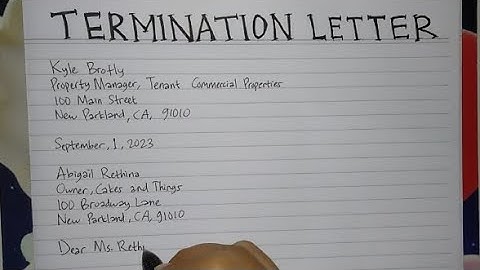 TERMINATION LETTER
Kyle Brofly
Property Manager, Tenant Commercial Properties
100 Main Street
New Partland, CA, 91010
September, 1, 2023
Abigail Rethina
Owner, Cakes and Things
100 Broadway Lane
New Partland, CA, 91010
Dear Ms. Reth